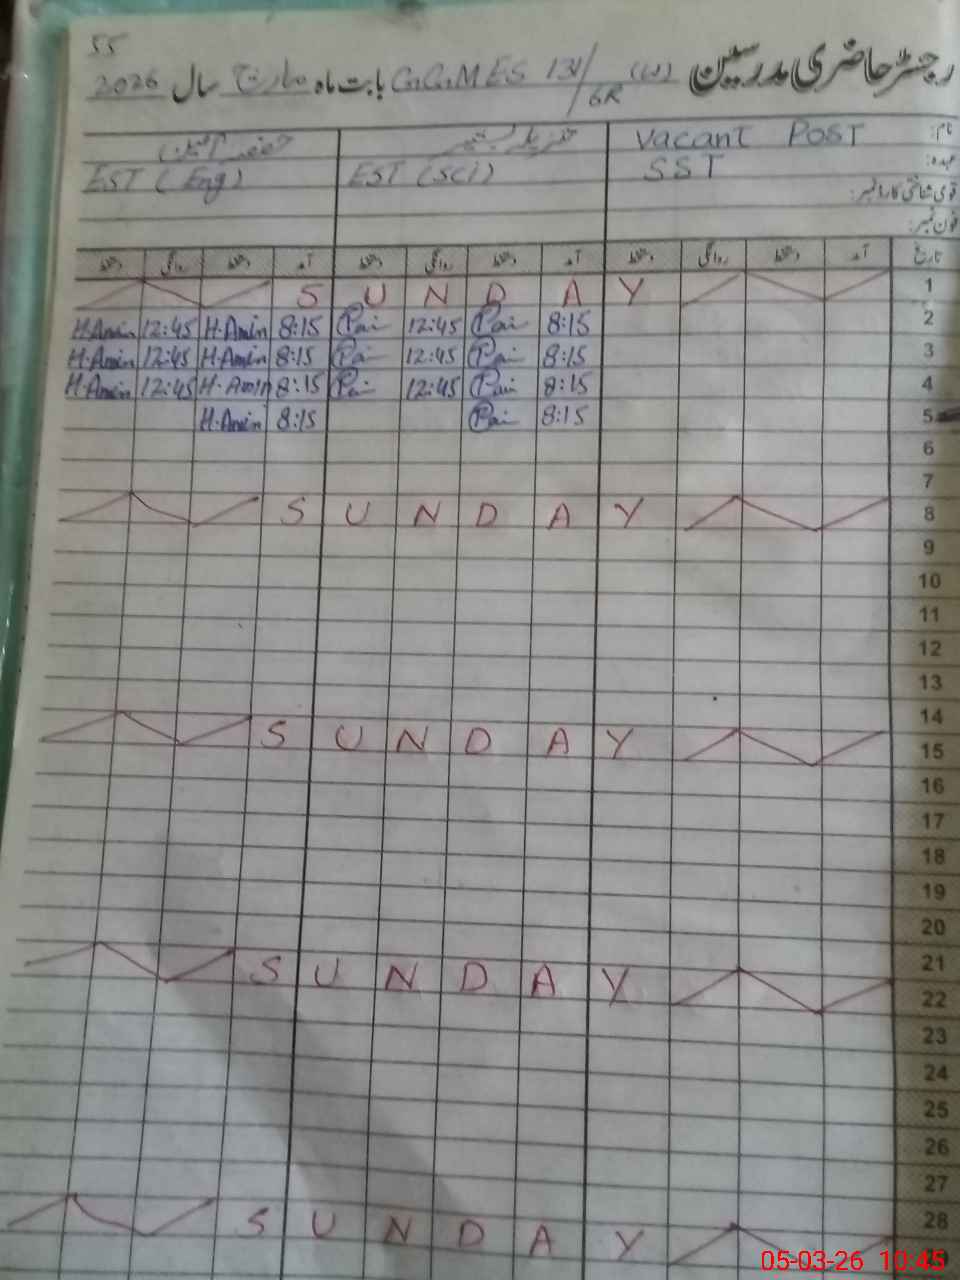 55
رجسٹر حاضری مدرسین G.G.M.E.S 131/6R (W) بابت ماہ مارچ سال 2026
نام: Vacant POST
عہدہ: SST EST (Sci) EST (Eng)
قومی شناختی کارڈ نمبر:
فون نمبر:
تاریخ آمد دستخط روانگی دستخط آمد دستخط روانگی دستخط آمد دستخط روانگی دستخط
S U N D A Y 1
H.Amin 12:45 H.Amin 8:15 12:45 8:15 2
H.Amin 12:45 H.Amin 8:15 12:45 8:15 3
H.Amin 12:45 H.Amin 8:15 12:45 8:15 4
H.Amin 8:15 8:15 5
6
7
S U N D A Y 8
9
10
11
12
13
14
S U N D A Y 15
16
17
18
19
20
21
S U N D A Y 22
23
24
25
26
27
28
S U N D A Y
05-03-26 10:45